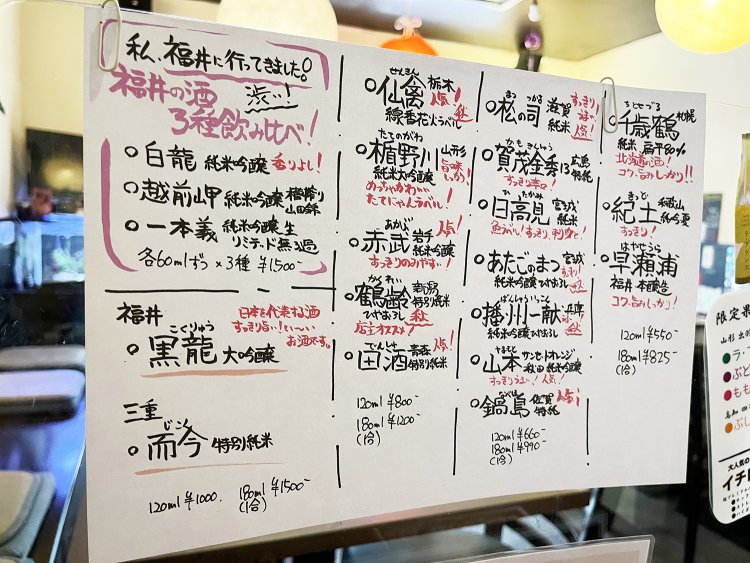 私、福井に行ってきました!
福井の酒
渋い!
3種飲み比べ!
白龍 純米吟醸 香りよし!
越前岬 純米吟醸 槽搾り
山田錦
一本義 純米吟醸 生
リミテッド 無ろ過
各60mlずつ×3種 ¥1500-
福井
日本を代表する酒
すっきり旨い!い〜い
お酒です。
こくりゅう
黒龍 大吟醸
三重
じこん
而今 特別純米
120ml ¥1000.
180ml ¥1500-
(1合)
せんきん
仙禽 栃木
人気!
線香花火ラベル
たてのがわ
楯野川 山形
純米大吟醸
旨味
しっかり!
めっちゃかわいい
たてにゃんラベル!
あかぶ
赤武 岩手
純米吟醸
人気!
すっきりのみやすい!
かくれい
鶴齢 新潟
特別純米
ひやおろし 秋
店主オススメ
でんしゅ
田酒 青森
特別純米
人気!
120ml ¥800-
180ml ¥1200-
(1合)
まつ つかさ
松の司 滋賀
純米
すっきり
うまい!
人気!
かもきんしゅう
賀茂金秀13 広島
特純
すっきり辛口!
ひたかみ
日高見 宮城
純米
魚がい!すっきり辛口〜!
あたごのまつ 宮城
純米吟醸 ひやおろし
秋
ばんしゅういっこん
播州一献 兵庫
純米吟醸 ひやおろし 秋
やまもと
山本 サンセットオレンジ
秋田 純米吟醸
すっきりうまい!人気!
なべしま
鍋島 佐賀
特純
人気!
120ml ¥660-
180ml ¥990-
(1合)
ちとせづる
千歳鶴 札幌
純米 扁平80%
北海道の酒!
コク、旨みしっかり!!
きっど
紀土 和歌山
純吟夏
すっきり!
はやせうら
早瀬浦
福井 本醸造
コク、旨みしっかり!
120ml ¥550-
180ml ¥825-
(1合)
限定果
山形 出羽
ラ・
ぶど
もも
高知
大人気の
イチ